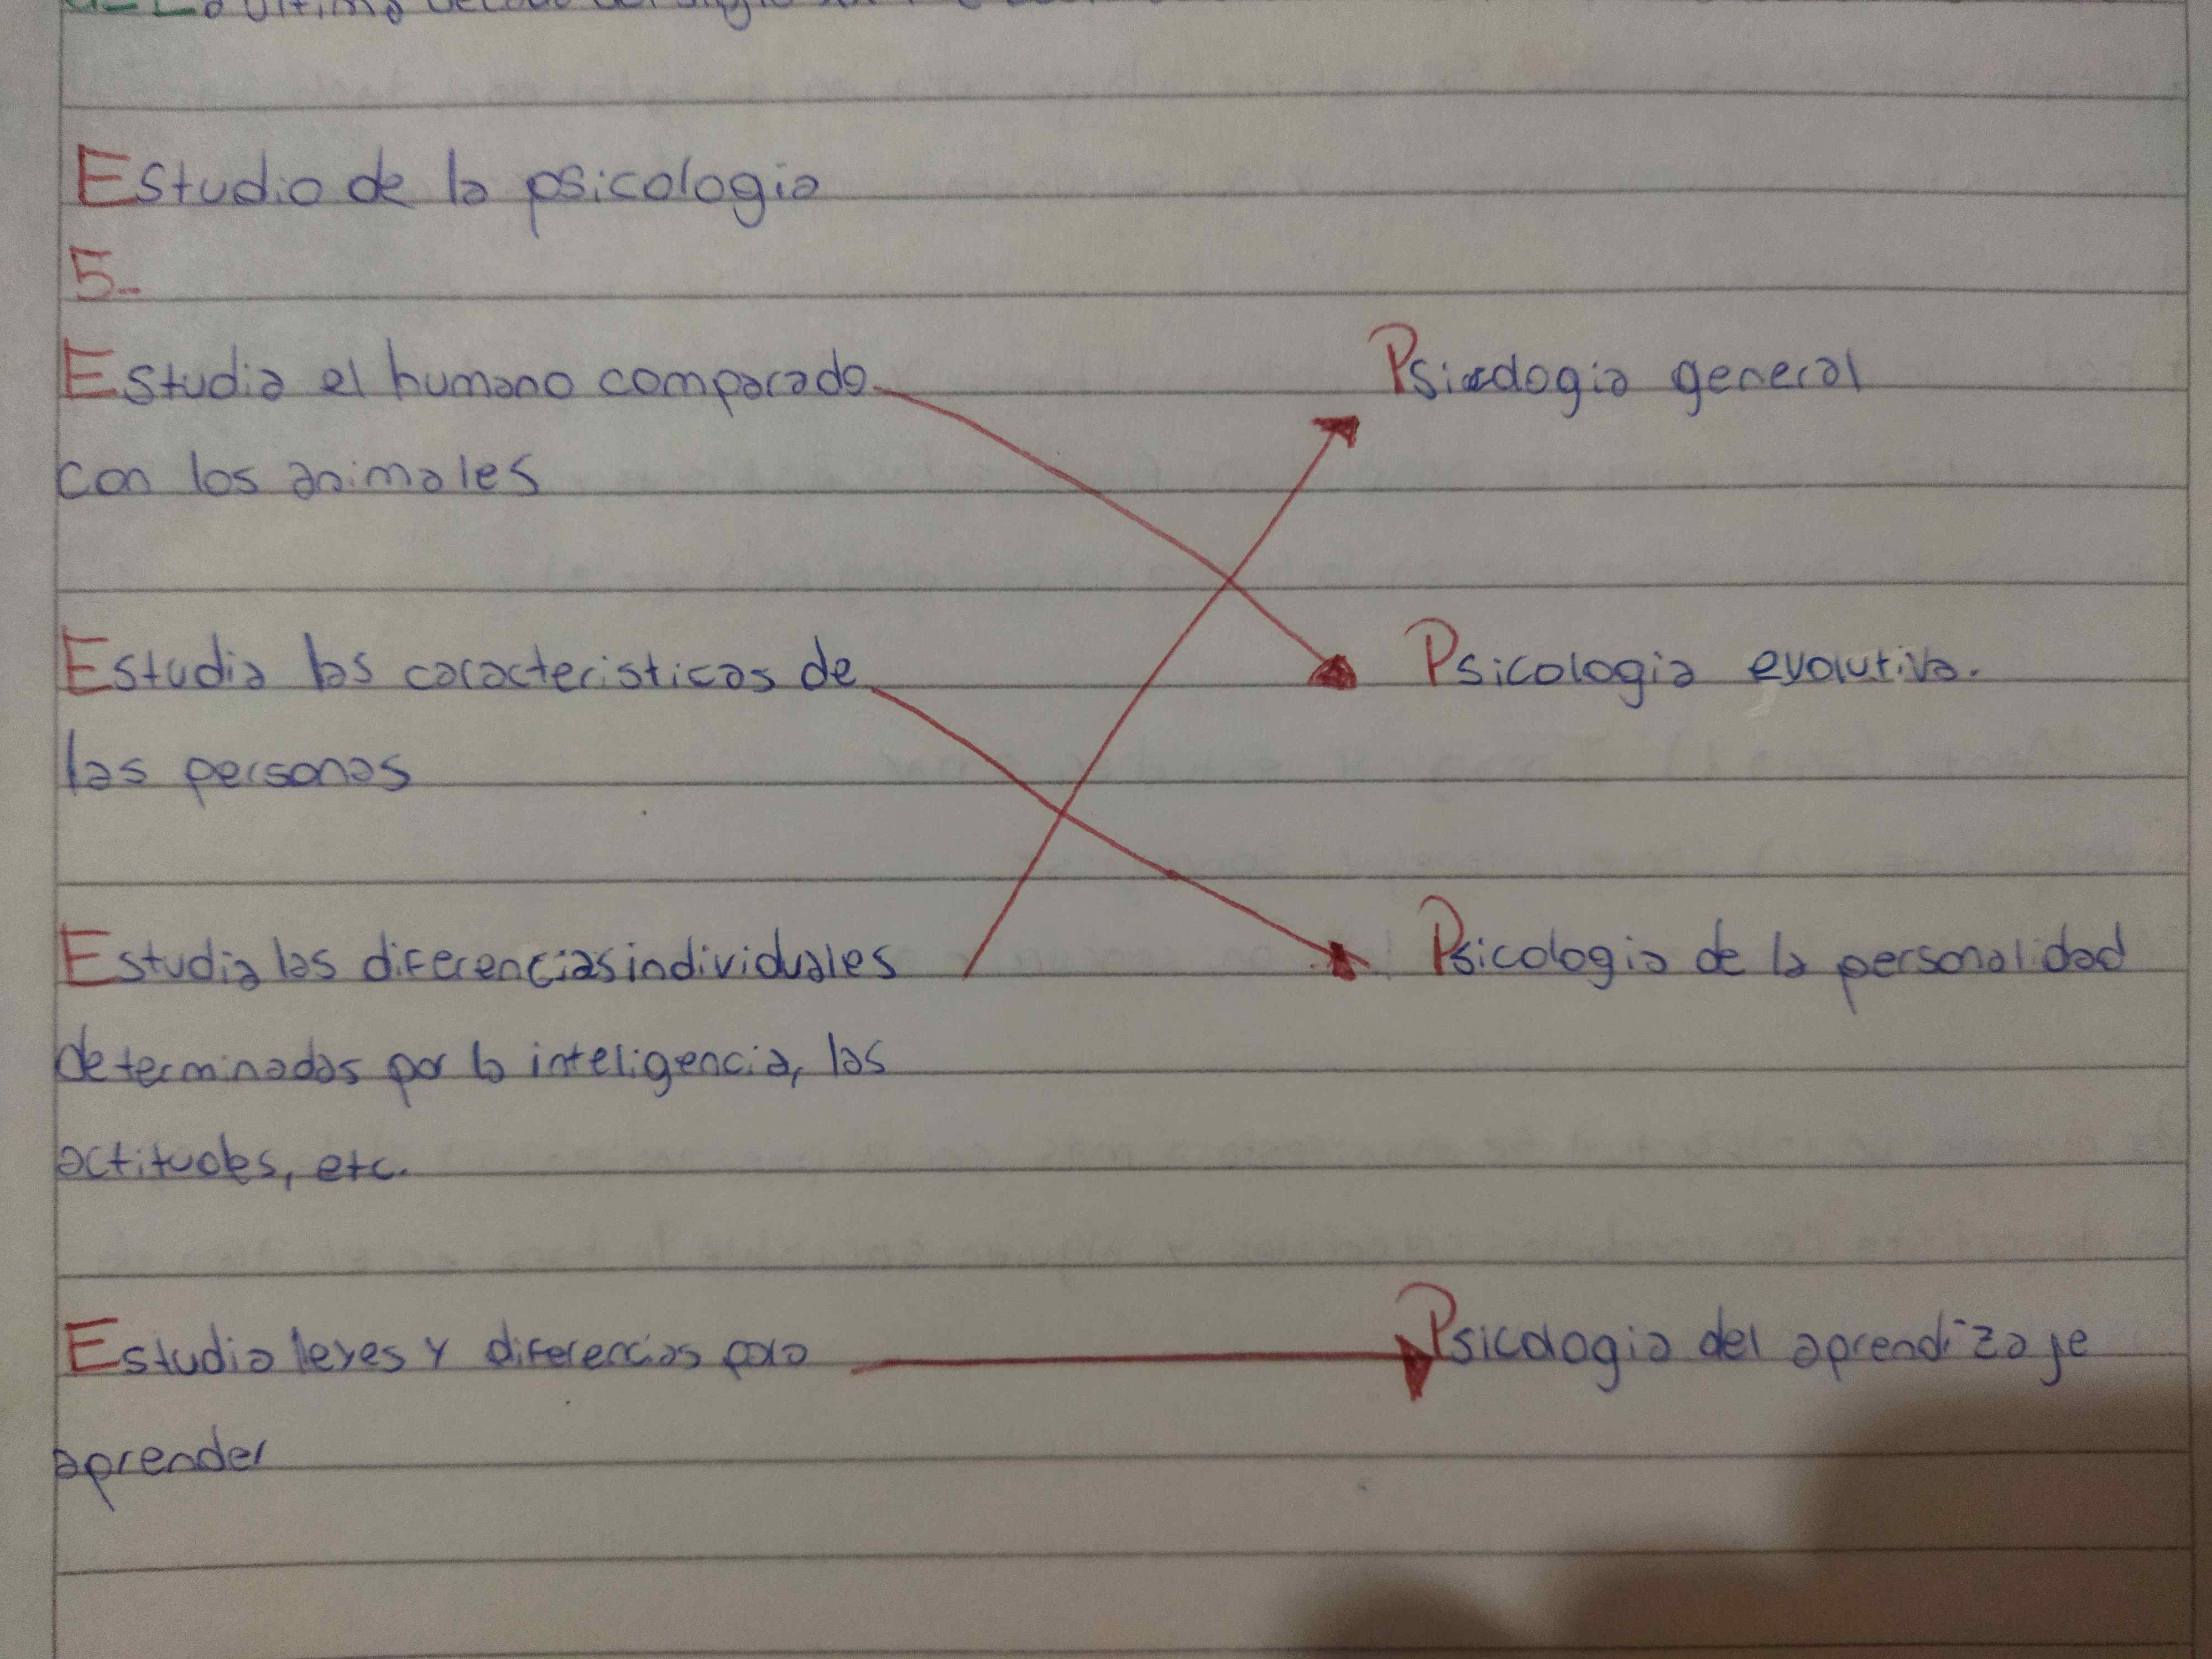 Ultima
Estudio de la psicologia
5-
Estudia el humano comparado Psicologia general
con los animales
Estudia las caracteristicas de Psicologia evolutiva.
las personas
Estudia las diferencias individuales Psicologia de la personalidad
determinadas por la inteligencia, las
actitudes, etc.
Estudia leyes y diferencias para Psicologia del aprendizaje
aprender